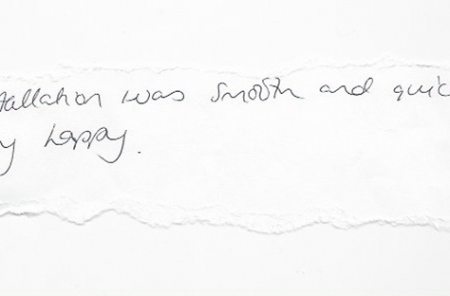 tallation was smooth and quic
y happy.